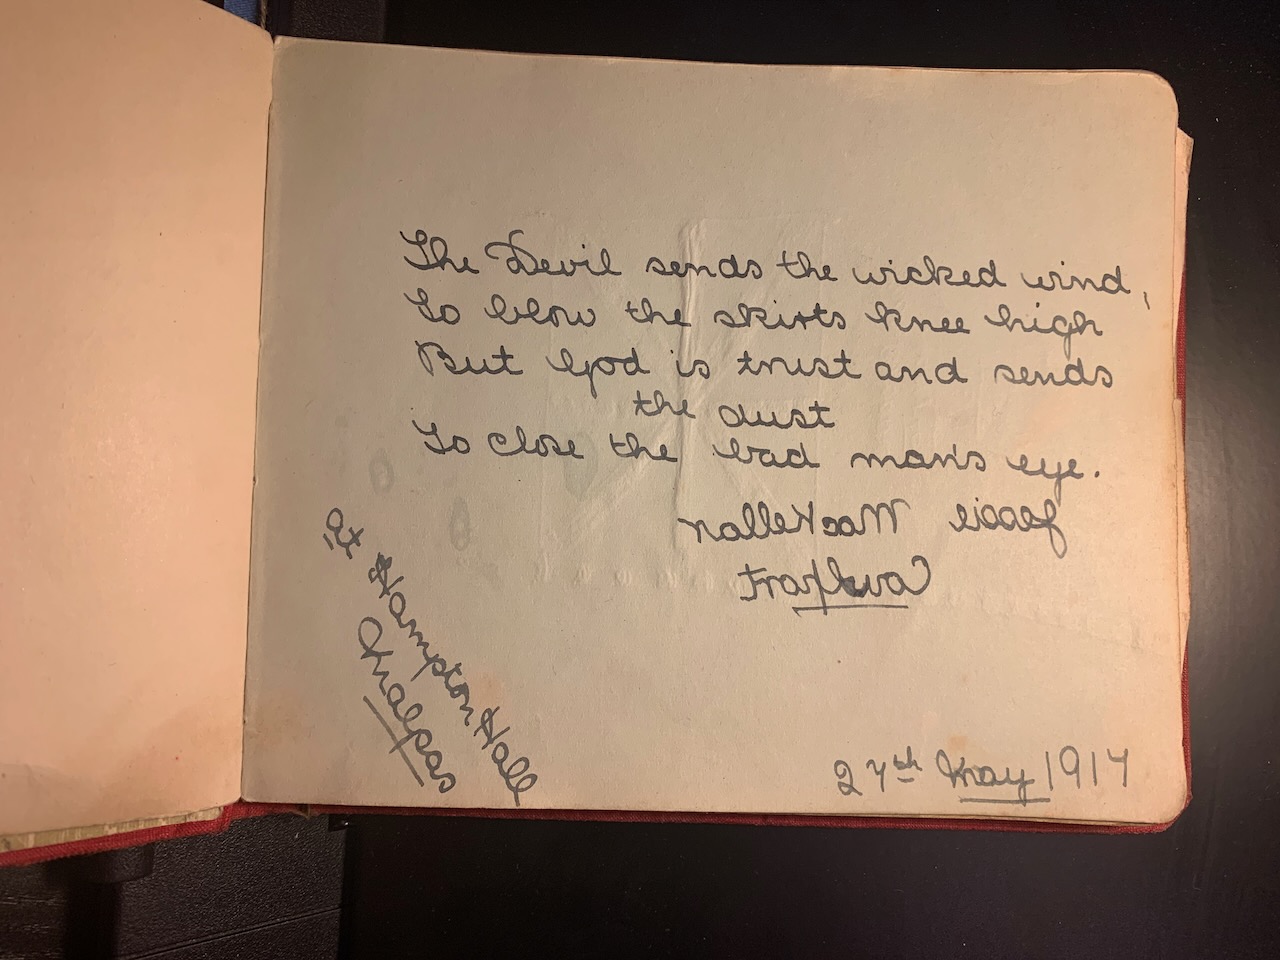 The Devil sends the wicked wind,
To blow the skirts knee high
But God is trust and sends
the dust
To close the bad man's eye.
Jessie
At Hampton Hall
Malpas
27th May 1917